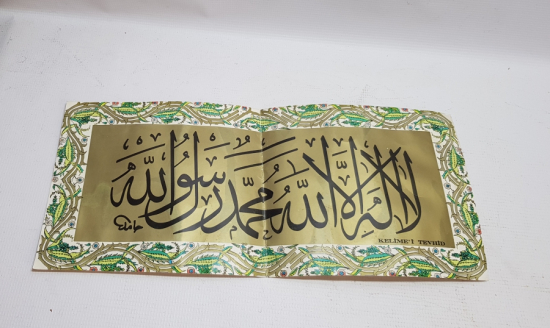 لا إله إلا الله محمد رسول الله
حامد
KELİME'İ TEVHİD